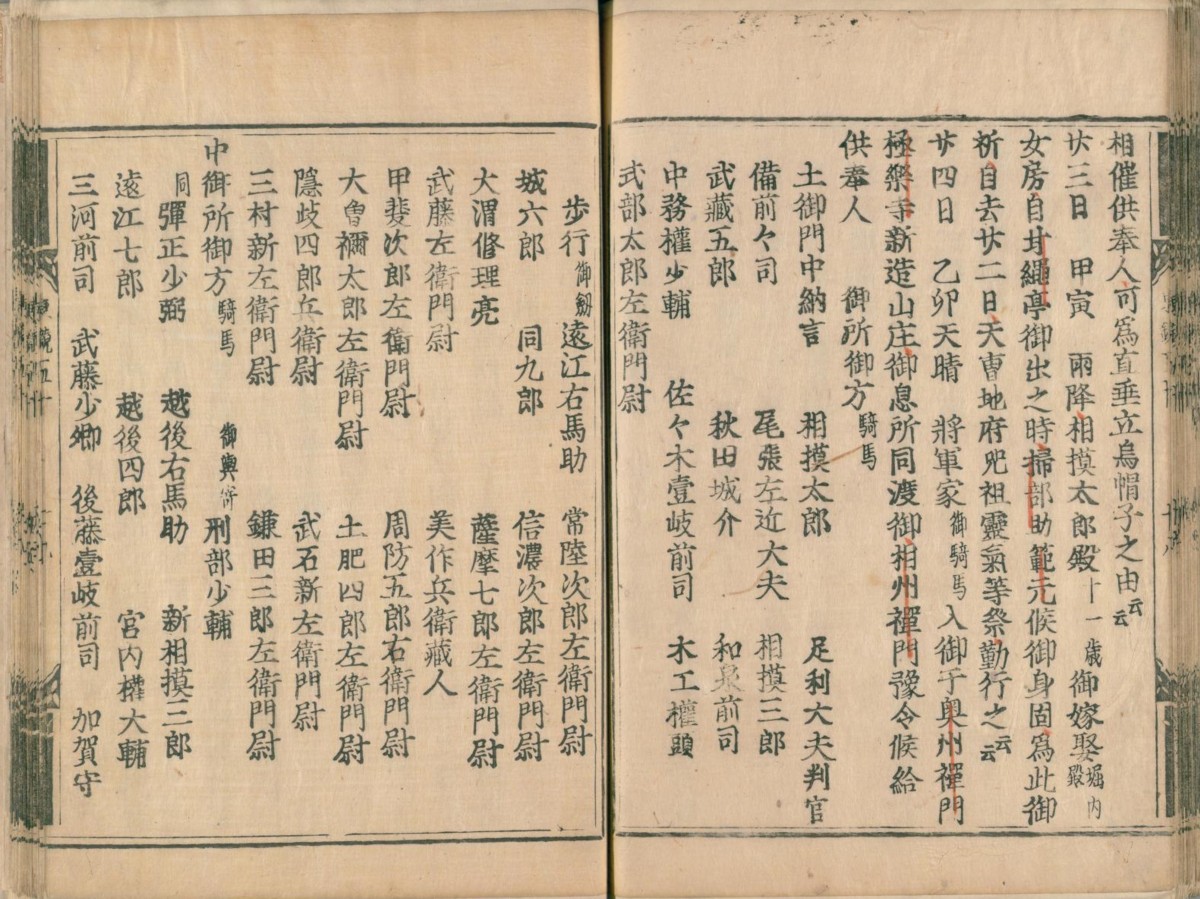 相催供奉人可爲直垂立烏帽子之由云云
廿三日　甲寅　雨降相摸太郎殿十一歳御嫁娶堀内殿
女房自甘繩亭御出之時掃部助範元候御身固爲此御
祈自去廿二日天曹地府呪祖靈氣等祭勤行之云云
廿四日　乙卯天晴　將軍家御騎馬入御于奥州禪門
極樂寺新造山庄御息所同渡御相州禪門豫令候給
供奉人　御所御方騎馬
土御門中納言　相摸太郎　足利大夫判官
備前々司　尾張左近大夫　相摸三郎
武藏五郎　秋田城介　和泉前司
中務權少輔　佐々木壹岐前司　木工權頭
式部太郎左衛門尉
歩行御劔遠江右馬助　常陸次郎左衛門尉
城六郎　同九郎　信濃次郎左衛門尉
大淯修理亮　薩摩七郎左衛門尉
武藤左衛門尉　美作兵衛藏人
甲斐次郎左衛門尉　周防五郎右衛門尉
大曽禰太郎左衛門尉　土肥四郎左衛門尉
隱岐四郎兵衛尉　武石新左衛門尉
三村新左衛門尉　鎌田三郎左衛門尉
中御所御方騎馬　御輿衍　刑部少輔
同彈正少弼　越後右馬助　新相摸三郎
遠江七郎　越後四郎　宮内權大輔
三河前司　武藤少卿　後藤壹岐前司　加賀守